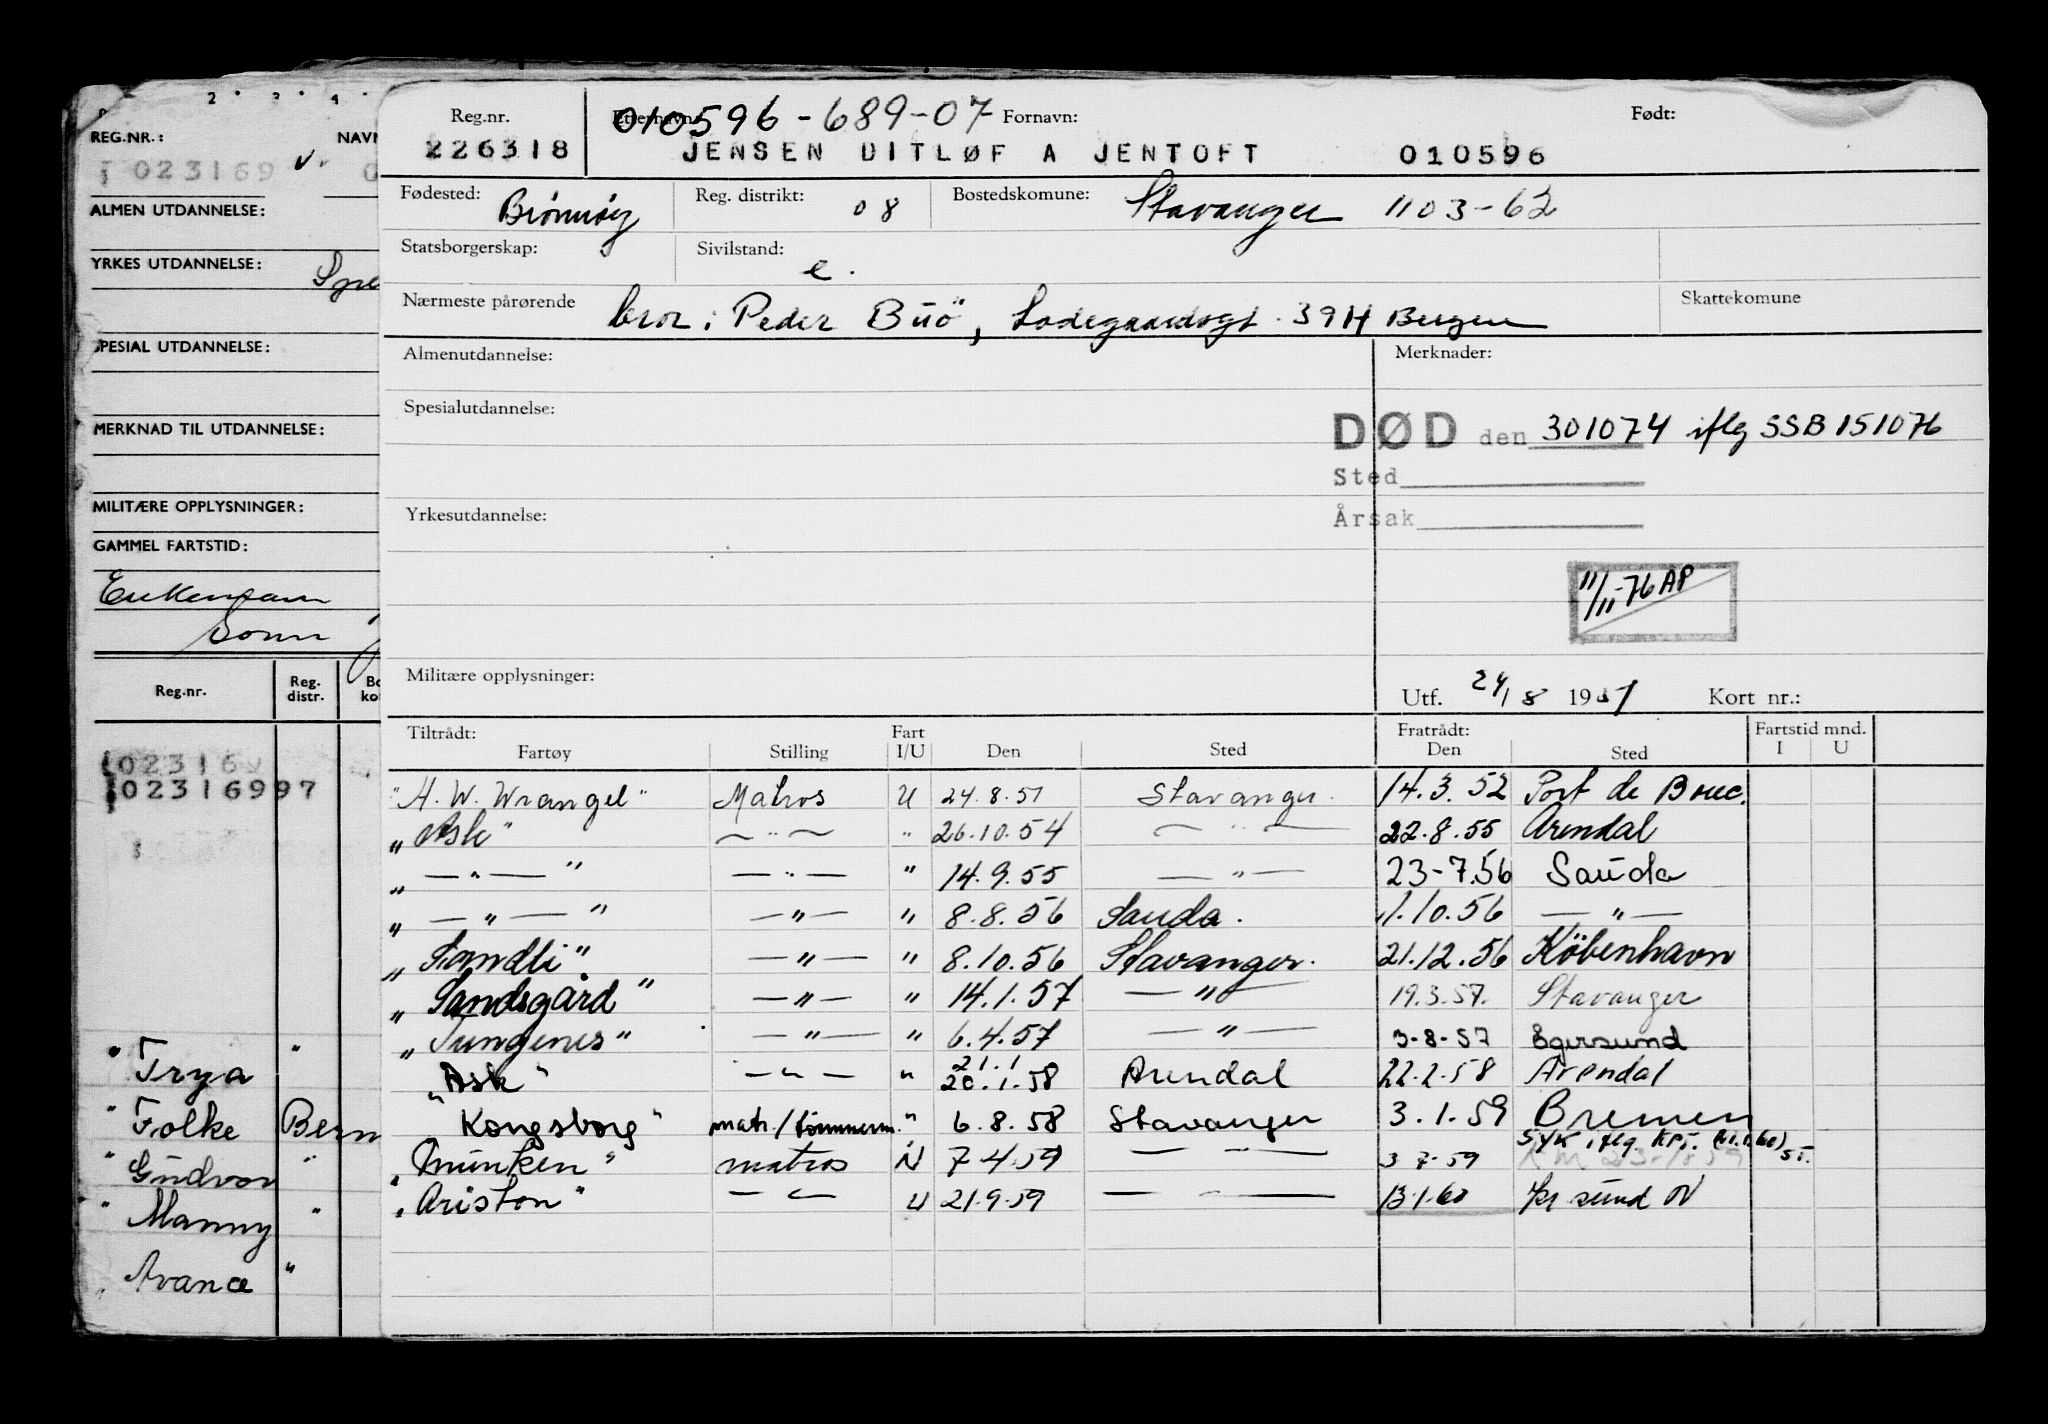 2 3 4
REG.NR.:
NAVN
023169
ALMEN UTDANNELSE:
YRKES UTDANNELSE:
SPESIAL UTDANNELSE:
MERKNAD TIL UTDANNELSE:
MILITÆRE OPPLYSNINGER:
GAMMEL FARTSTID:
Reg.nr.
Reg. distr.
023169
02316997
" Trya "
" Folke Bern
" Gudvor "
" Manny "
Avance "
Reg.nr.
010596-689-07
Fornavn:
Født:
226318
JENSEN DITLØF A JENTOFT
010596
Fødested: Brønnøy
Reg. distrikt: 08
Bostedskomune: Stavanger 1103-62
Statsborgerskap:
Sivilstand: e.
Nærmeste pårørende bror: Peder Buö, Ladegaardsgt. 39 H Bergen
Skattekomune
Almenutdannelse:
Merknader:
Spesialutdannelse:
DØD den 301074 iflg SSB 151076
Sted
Årsak
Yrkesutdannelse:
11/11-76 AP
Militære opplysninger:
Utf. 24/8 1951 Kort nr.:
Tiltrådt:
Fart
Fratrådt:
Fartstid mnd.
Fartøy Stilling I/U Den Sted Den Sted I U
"H. W. Wrangel" Matros U 24.8.51 Stavanger. 14.3.52 Port de Bouc.
"Ask" — " — " 26.10.54 — " — 22.8.55 Arendal
" — " — " — " — " 14.9.55 — " — 23-7.56 Sauda
" — " — " — " — " 8.8.56 Sauda. 1.10.56 — " —
"Sandli" — " — " 8.10.56 Stavanger. 21.12.56 København
"Sandsgård" — " — " 14.1.57 — " — 19.3.57. Stavanger
"Tungenes" — " — " 6.4.57 — " — 3-8-57 Egersund
21.1
"Ask" — " — " 20.1.58 Arendal 22.2.58 Arendal
"Kongsborg" matr./tømmerm. " 6.8.58 Stavanger 3.1.59 Bremen
syk iflg. kpt.
"Munken" matros N 7-4-59 — " — 3-7-59
"Ariston" — " — U 21.9.59 — " — 13.1.60 Kr sund N